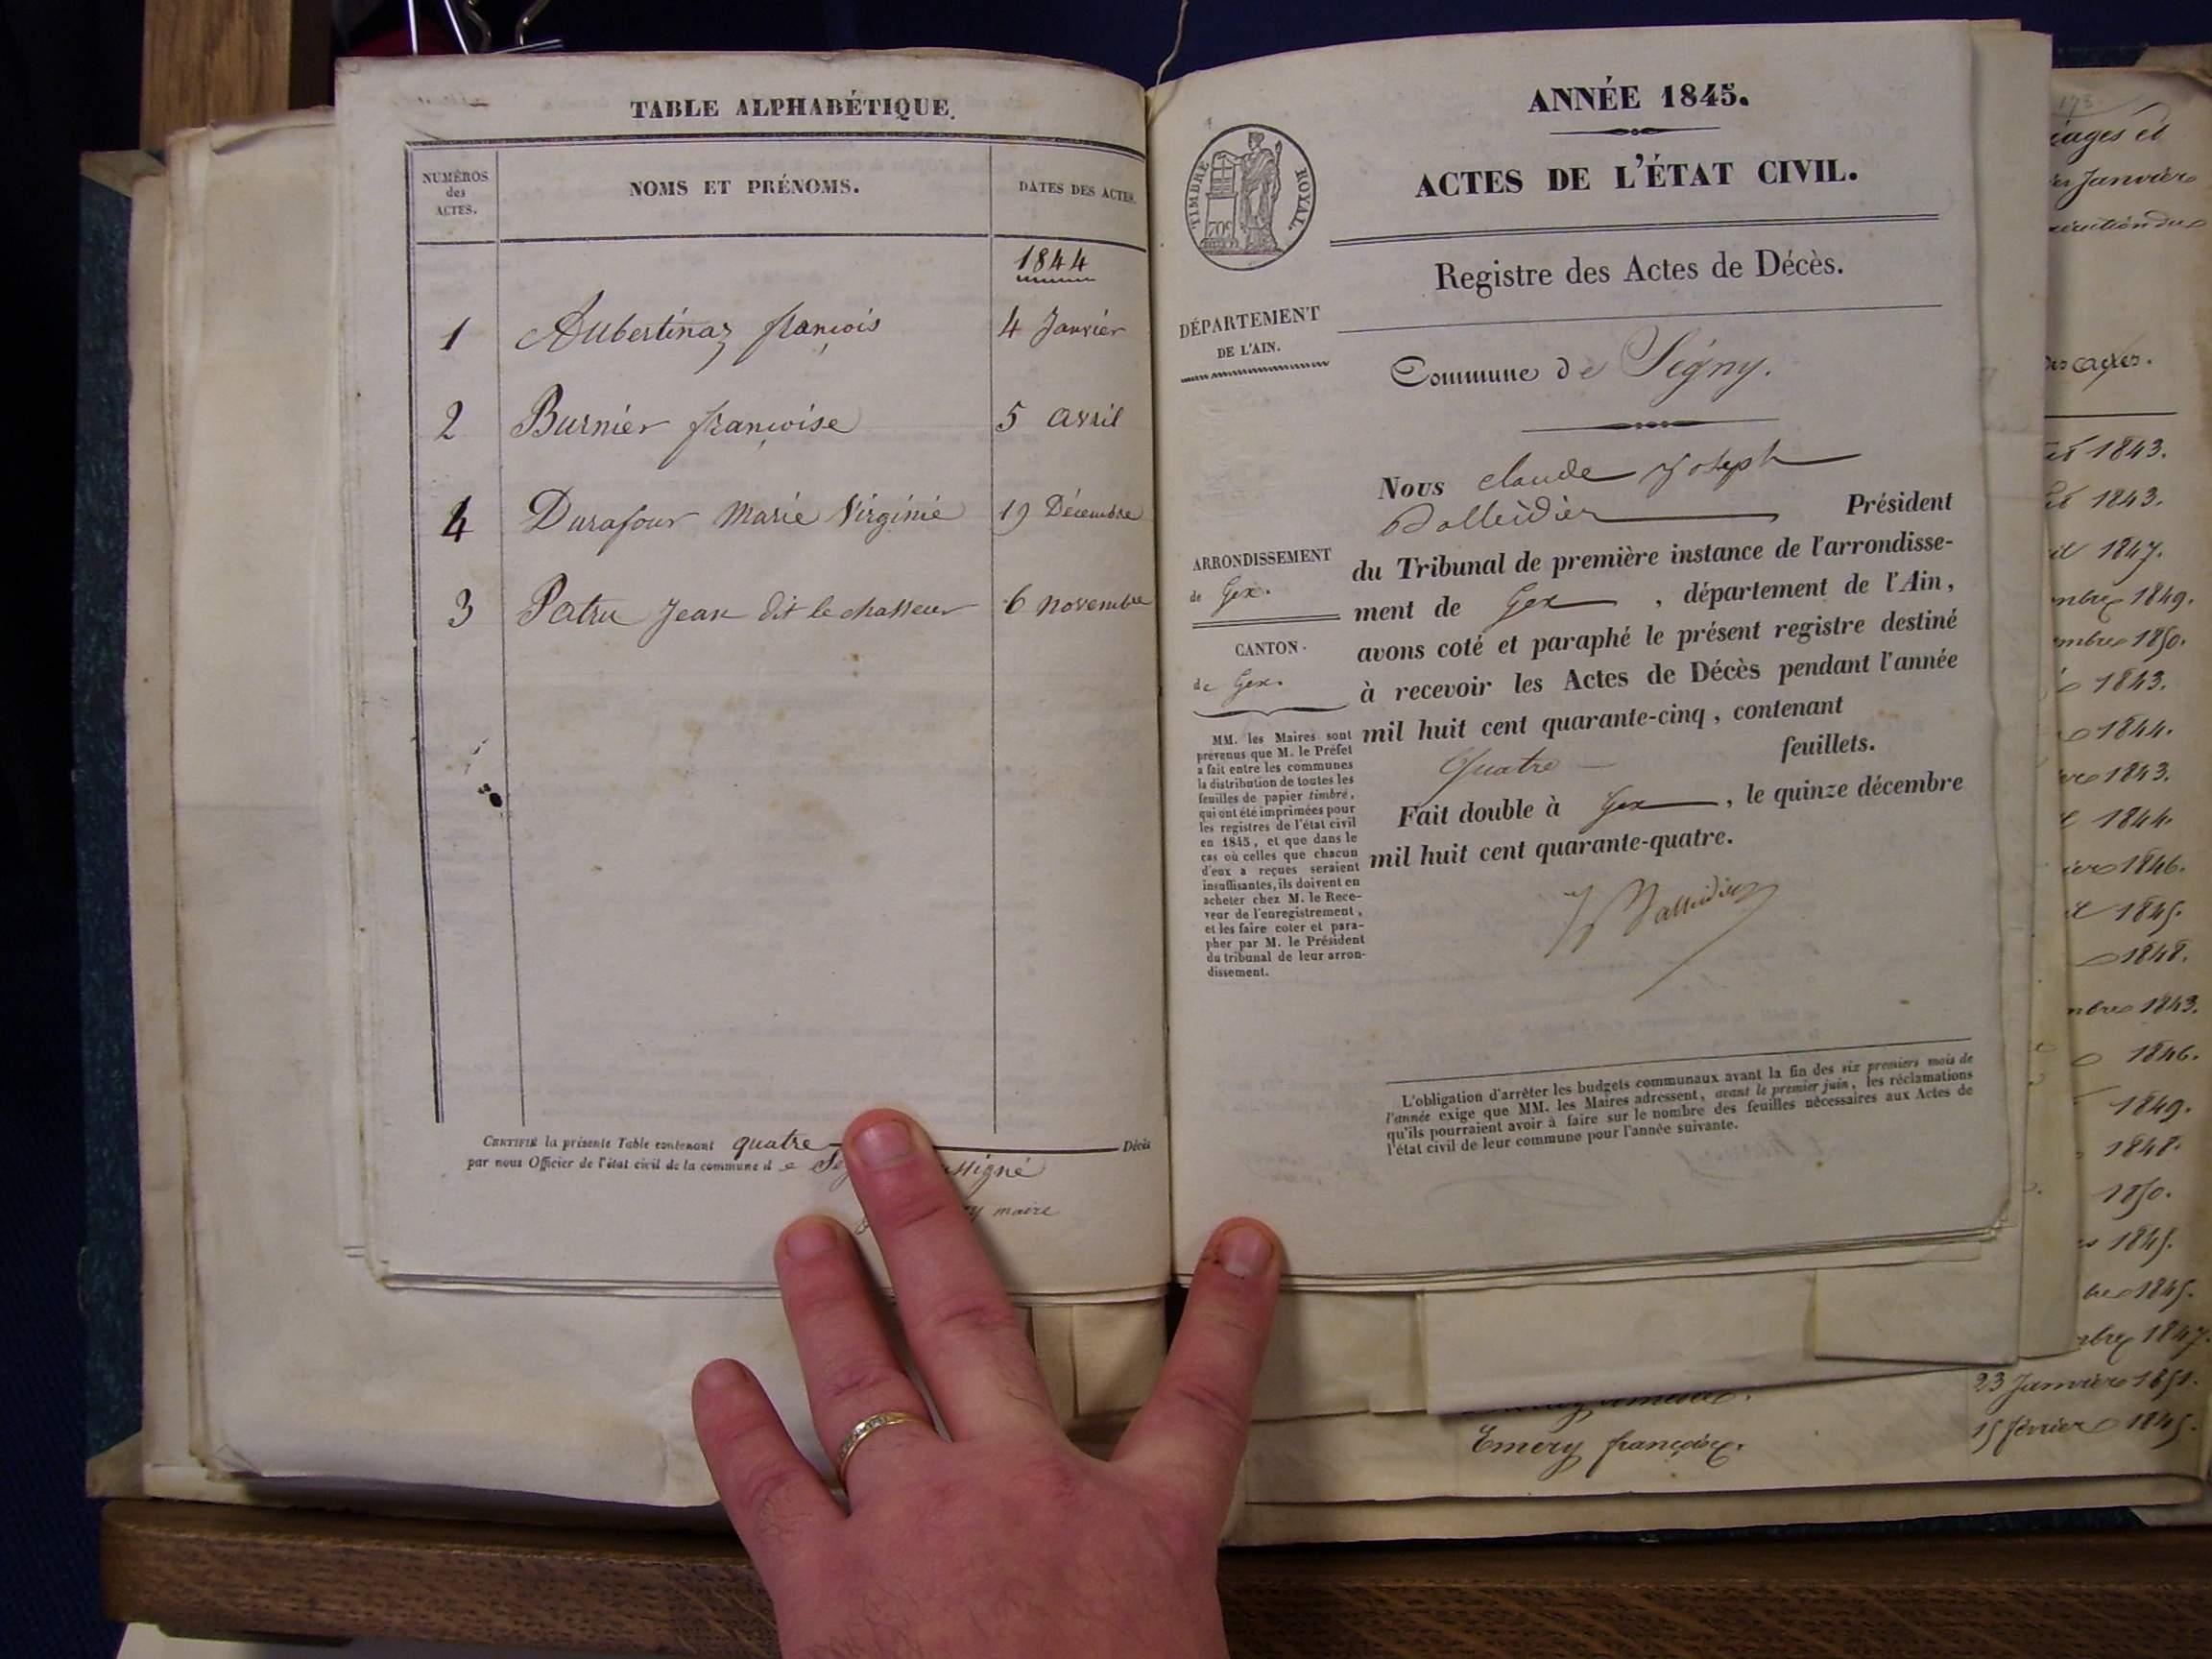 TABLE ALPHABÉTIQUE.
NUMÉROS
des
ACTES.
NOMS ET PRÉNOMS.
DATES DES ACTES.
1844
1 Aubertinaz françois 4 Janvier
2 Burnier françoise 5 avril
4 Durafour Marie Virginie 19 Décembre
3 Patru Jean dit le chasseur 6 novembre
CERTIFIÉ la présente Table contenant quatre Décès
par nous Officier de l'état civil de la commune de
maire
ANNÉE 1845.
ACTES DE L'ÉTAT CIVIL.
TIMBRE ROYAL.
70c
Registre des Actes de Décès.
DÉPARTEMENT
DE L'AIN.
Commune de Ségny.
ARRONDISSEMENT
de Gex.
CANTON
de Gex.
MM. les Maires sont
prévenus que M. le Préfet
a fait entre les communes
la distribution de toutes les
feuilles de papier timbré,
qui ont été imprimées pour
les registres de l'état civil
en 1845, et que dans le
cas où celles que chacun
d'eux a reçues seraient
insuffisantes, ils doivent en
acheter chez M. le Rece-
veur de l'enregistrement,
et les faire coter et para-
pher par M. le Président
du tribunal de leur arron-
dissement.
Nous claude Joseph
Président
du Tribunal de première instance de l'arrondisse-
ment de Gex, département de l'Ain,
avons coté et paraphé le présent registre destiné
à recevoir les Actes de Décès pendant l'année
mil huit cent quarante-cinq, contenant
Quatre feuillets.
Fait double à Gex, le quinze décembre
mil huit cent quarante-quatre.
L'obligation d'arrêter les budgets communaux avant la fin des six premiers mois de
l'année exige que MM. les Maires adressent, avant le premier juin, les réclamations
qu'ils pourraient avoir à faire sur le nombre des feuilles nécessaires aux Actes de
l'état civil de leur commune pour l'année suivante.
178.
Janvier
1843.
1843.
1847.
1849.
1850.
1843.
1844.
1843.
1844.
1846.
1845.
1848.
1843.
1846.
1849.
1848.
1850.
1845.
1845.
1847.
23 Janvier 1851.
Emery françoise. 15 février 1845.